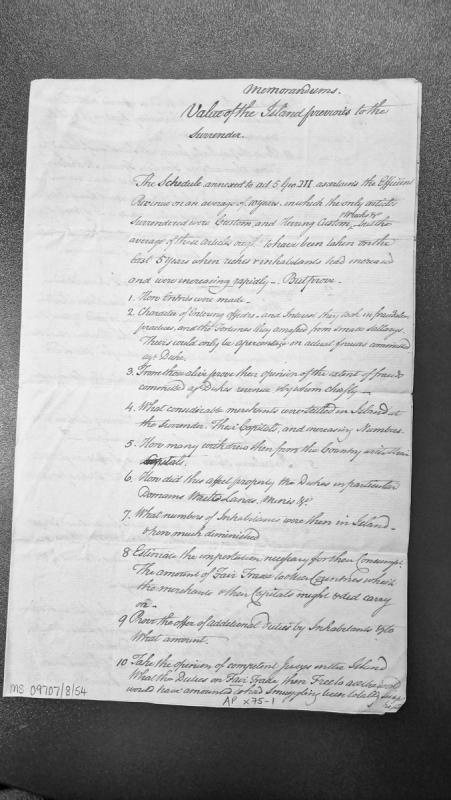 Memorandums.
Value of the Island previous to the
Surrender.
The Schedule annexed to act 5 Geo III. ascertains the Efficient
Revenue on an average of 10 years, in which the only articles
Surrendered were Custom, and Herring Custom, Wrecks &c but the
average of those articles ought to have been taken on the
last 5 Years when riches & inhabitants had increased
and were increasing rapidly. But prove
1. How Entries were made.
2. Character of Officers, and Interest they took in fraudulent
practices, and the fortunes they amassed from small Sallarys.
Theirs could only be a percentage on actual frauds committed
agt. Duke.
3. From them alive prove their opinion of the extent of frauds
committed agt Dukes revenue & by whom chiefly
4. What considerable merchants were settled in Island at
the Surrender. Their Capitals, and increasing Numbers.
5. How many withdrew then from the Country with their
Capitals.
6. How did this affect property the Dukes in particular
Domains Lands, Mines &c.
7. What numbers of Inhabitants were then in Island
& how much diminished
8 Estimate the importation necessary for their Consumpt.
The amount of Fair Trade to other Countries which
the merchants & their Capitals might & did carry
on.
9 Prove the offer of additional duties by Inhabitants & to
What amount.
10 Take the opinion of competent Judges in the Island
What the Duties on Fair Trade then Free to all the world
would have amounted to had Smuggling been totally
MS 09707/8/54
AP X75-1